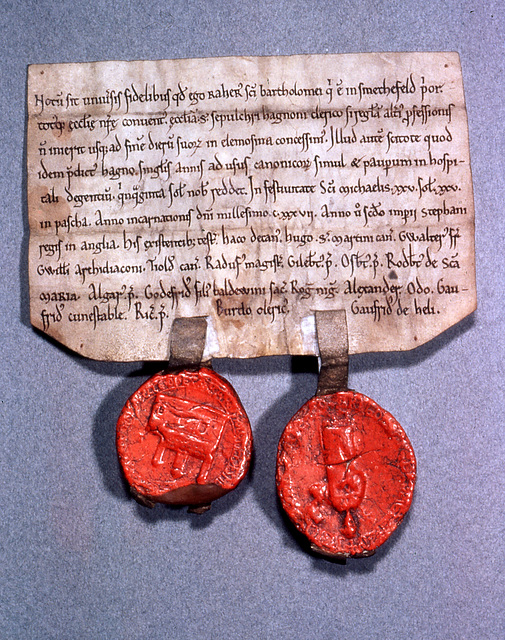 Notū sit uniu͛sis fidelibus qd̄ ego Raher͛ sc̄i bartholomei q̄ ē in smethefeld p̄po-
toteq; eccl̄ię nr̄ę conuent͛ eccl̄iā s͛ sepulchri hagnoni clerico
n̄ usq; ad finē dierū suoꝝ in elemosina concessim͛. Illud autē scitote quod
idem p̄dict͛ hagno. singl̄is annis ad usus canonicoꝝ simul & pauperum in hospi-
tali degentiū, q̄nq̄ginta sol͛ nob͛ reddet. In festiuitate Sc̄i Michaelis, xxv. sol͛, xxv.
in pascha. Anno incarnationis dn̄i millesimo. c. xxx vij. Anno ū sc̄do impii Stephani
regis in anglia. His existentib; test͛. haco decan͛. hugo can͛. Gwalter͛ fr̄
Gwill̄i Archidiaconi. can͛. Raduf͛ magist͛. Gileb͛t͛ p̄. Osb͛t͛ p̄. Rodb͛t͛ de Sc̄a
maria. Algar͛ p̄. Godefrid͛ fil͛ baldewini sac͛. Rog͛ nig͛. Alexander. Odo. Gau-
frid͛ cunestable. Ric͛ p̄. Burdo cleric͛. Gaufrid͛ de heli.